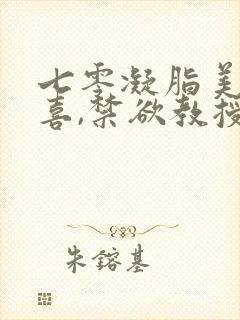 七零凝脂美
喜,禁欲教授
朱镕基